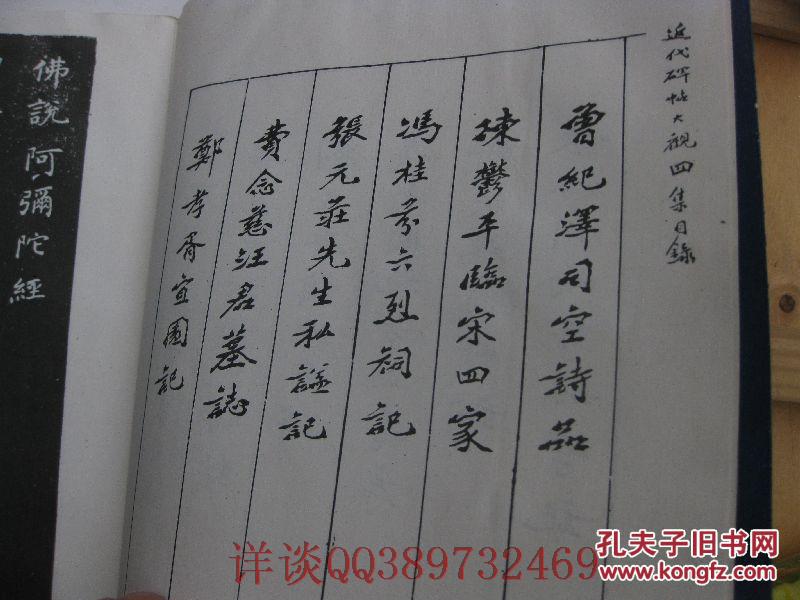 近代碑帖大觀四集目錄
曾紀澤司空詩品
陳鬱平臨宋四家
馮桂芬六烈祠記
張元莊先生私謚記
費念慈汪君墓誌
鄭孝胥宜園記
佛說阿彌陀經
详谈QQ389732469
孔夫子旧书网
www.kongfz.com